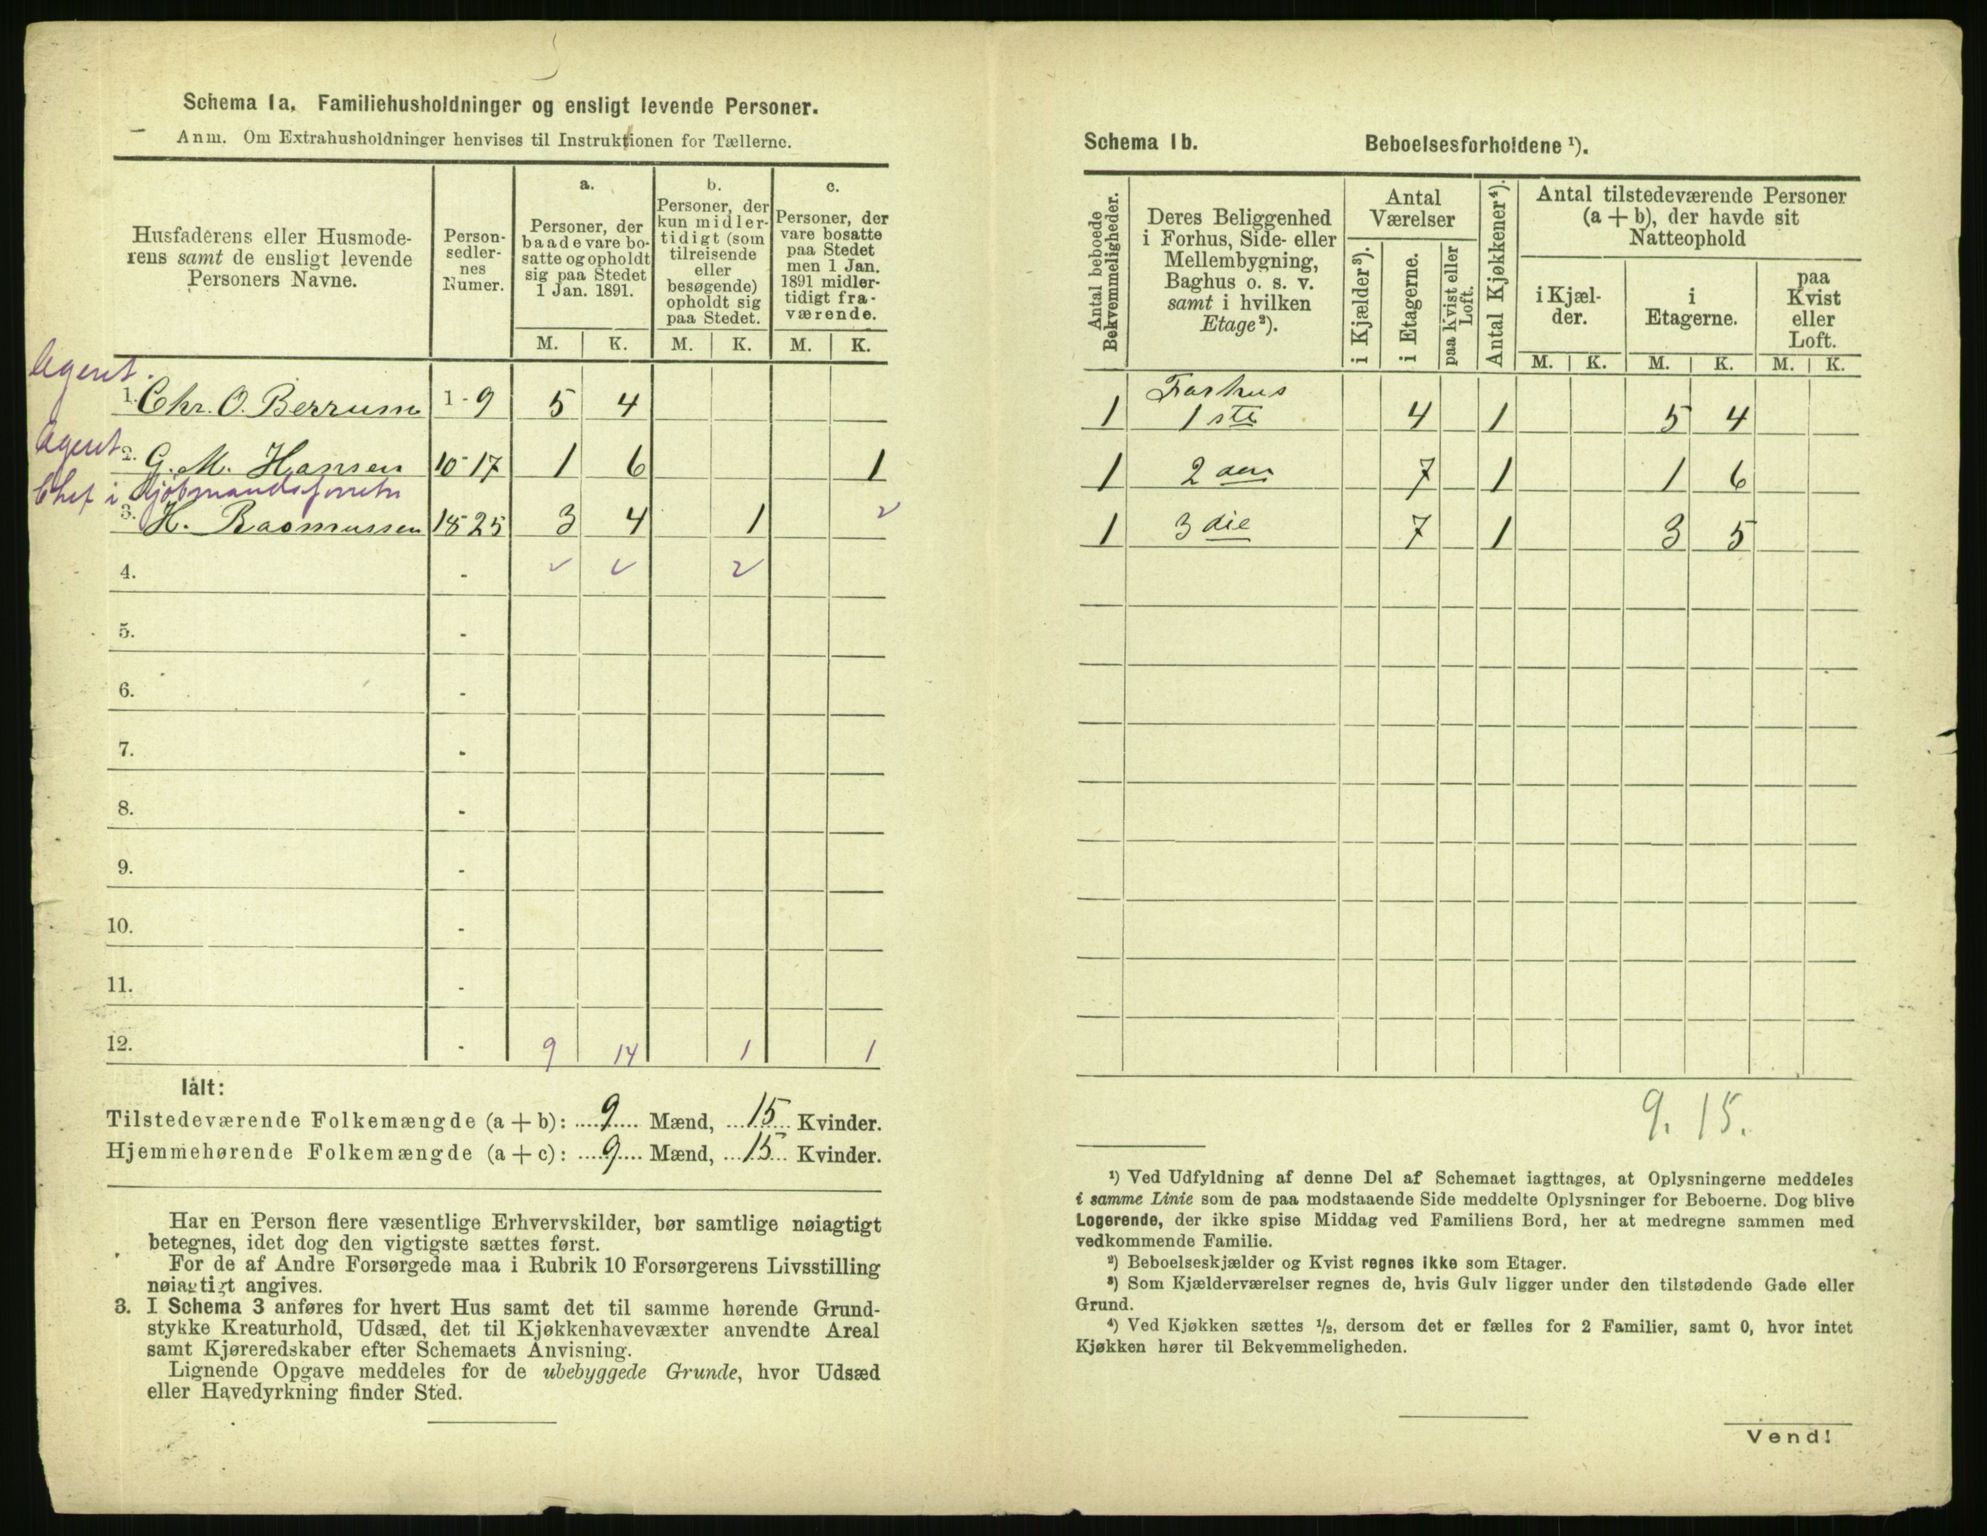 Schema 1a. Familiehusholdninger og ensligt levende Personer.
Anm. Om Extrahusholdninger henvises til Instruktionen for Tællerne.
Husfaderens eller Husmoderens samt de ensligt levende Personers Navne.
Personsedlernes Numer.
a.
Personer, der baade vare bosatte og opholdt sig paa Stedet 1 Jan. 1891.
b.
Personer, der kun midlertidigt (som tilreisende eller besøgende) opholdt sig paa Stedet.
c.
Personer, der vare bosatte paa Stedet men 1 Jan. 1891 midlertidigt fraværende.
M. K. M. K. M. K.
Agent.
1. Chr. O. Berrum 1-9 5 4
Agent
2. G. M. Hansen 10-17 1 6 1
Chef i Kjöbmandsforretn
3. H. Rasmussen 18-25 3 4 1
4. -
5. -
6. -
7. -
8. -
9. -
10. -
11. -
12. - 9 14 1 1
Ialt:
Tilstedeværende Folkemængde (a + b): 9 Mænd, 15 Kvinder.
Hjemmehørende Folkemængde (a + c): 9 Mænd, 15 Kvinder.
Har en Person flere væsentlige Erhvervskilder, bør samtlige nøiagtigt
betegnes, idet dog den vigtigste sættes først.
For de af Andre Forsørgede maa i Rubrik 10 Forsørgerens Livsstilling
nøiagtigt angives.
3. I Schema 3 anføres for hvert Hus samt det til samme hørende Grund-
stykke Kreaturhold, Udsæd, det til Kjøkkenhavevæxter anvendte Areal
samt Kjøreredskaber efter Schemaets Anvisning.
Lignende Opgave meddeles for de ubebyggede Grunde, hvor Udsæd
eller Havedyrkning finder Sted.
Schema 1b. Beboelsesforholdene ¹).
Antal beboede Bekvemmeligheder.
Deres Beliggenhed i Forhus, Side- eller Mellembygning, Baghus o. s. v. samt i hvilken Etage ²).
Antal Værelser
i Kjælder ³).
i Etagerne.
paa Kvist eller Loft.
Antal Kjøkkener ⁴).
Antal tilstedeværende Personer (a + b), der havde sit Natteophold
i Kjælder.
i Etagerne.
paa Kvist eller Loft.
M. K. M. K. M. K.
Forhus
1 1 ste 4 1 5 4
1 2 den 7 1 1 6
1 3 die 7 1 3 5
9. 15.
¹) Ved Udfyldning af denne Del af Schemaet iagttages, at Oplysningerne meddeles
i samme Linie som de paa modstaaende Side meddelte Oplysninger for Beboerne. Dog blive
Logerende, der ikke spise Middag ved Familiens Bord, her at medregne sammen med
vedkommende Familie.
²) Beboelseskjælder og Kvist regnes ikke som Etager.
³) Som Kjælderværelser regnes de, hvis Gulv ligger under den tilstødende Gade eller
Grund.
⁴) Ved Kjøkken sættes ½, dersom det er fælles for 2 Familier, samt 0, hvor intet
Kjøkken hører til Bekvemmeligheden.
Vend!